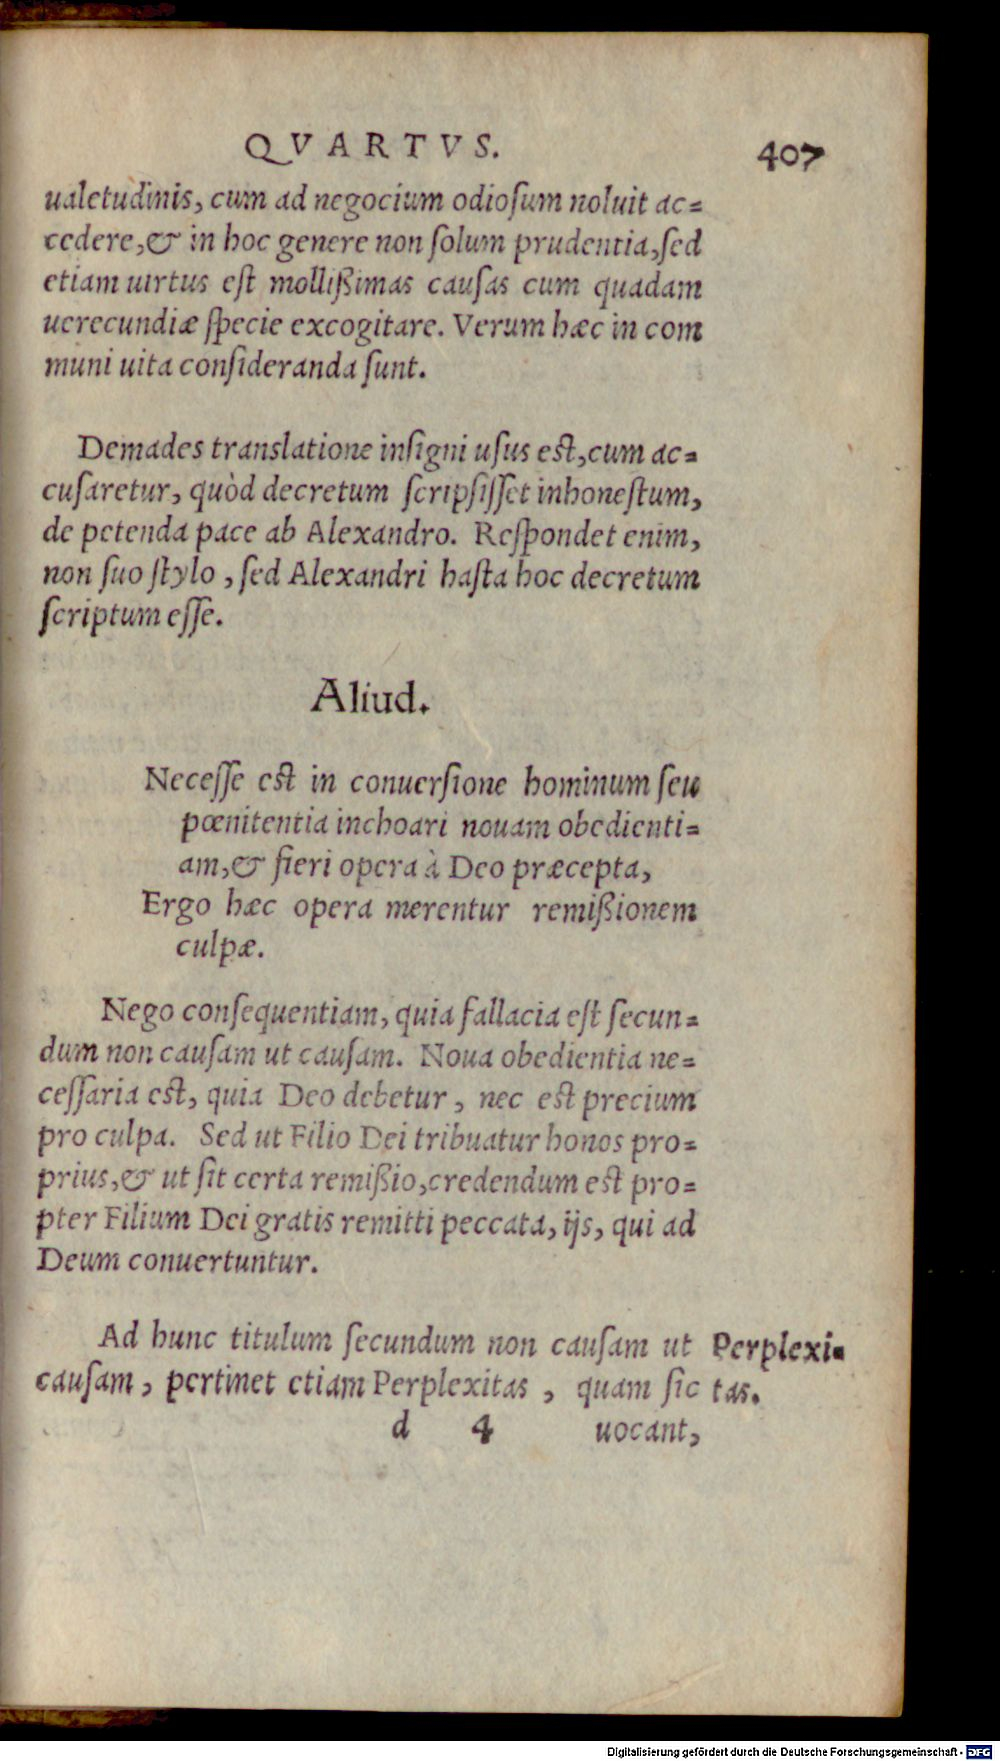 QVARTVS. 407
ualetudinis, cum ad negocium odioſum noluit ac=
cedere, & in hoc genere non ſolum prudentia, ſed
etiam uirtus eſt mollißimas cauſas cum quadam
uerecundiæ ſpecie excogitare. Verum hæc in com
muni uita conſideranda ſunt.
Demades translatione inſigni uſus eſt, cum ac=
cuſaretur, quòd decretum ſcripſiſſet inhoneſtum,
de petenda pace ab Alexandro. Reſpondet enim,
non ſuo ſtylo, ſed Alexandri haſta hoc decretum
ſcriptum eſſe.
Aliud.
Neceſſe eſt in conuerſione hominum ſeu
pœnitentia inchoari nouam obedienti=
am, & fieri opera à Deo præcepta,
Ergo hæc opera merentur remißionem
culpæ.
Nego conſequentiam, quia fallacia eſt ſecun=
dum non cauſam ut cauſam. Noua obedientia ne=
ceſſaria eſt, quia Deo debetur, nec eſt precium
pro culpa. Sed ut Filio Dei tribuatur honos pro=
prius, & ut ſit certa remißio, credendum eſt pro=
pter Filium Dei gratis remitti peccata, ijs, qui ad
Deum conuertuntur.
Ad hunc titulum ſecundum non cauſam ut Perplexi=
cauſam, pertinet etiam Perplexitas, quam ſic tas.
d 4 uocant,
Digitalisierung gefördert durch die Deutsche Forschungsgemeinschaft - DFG